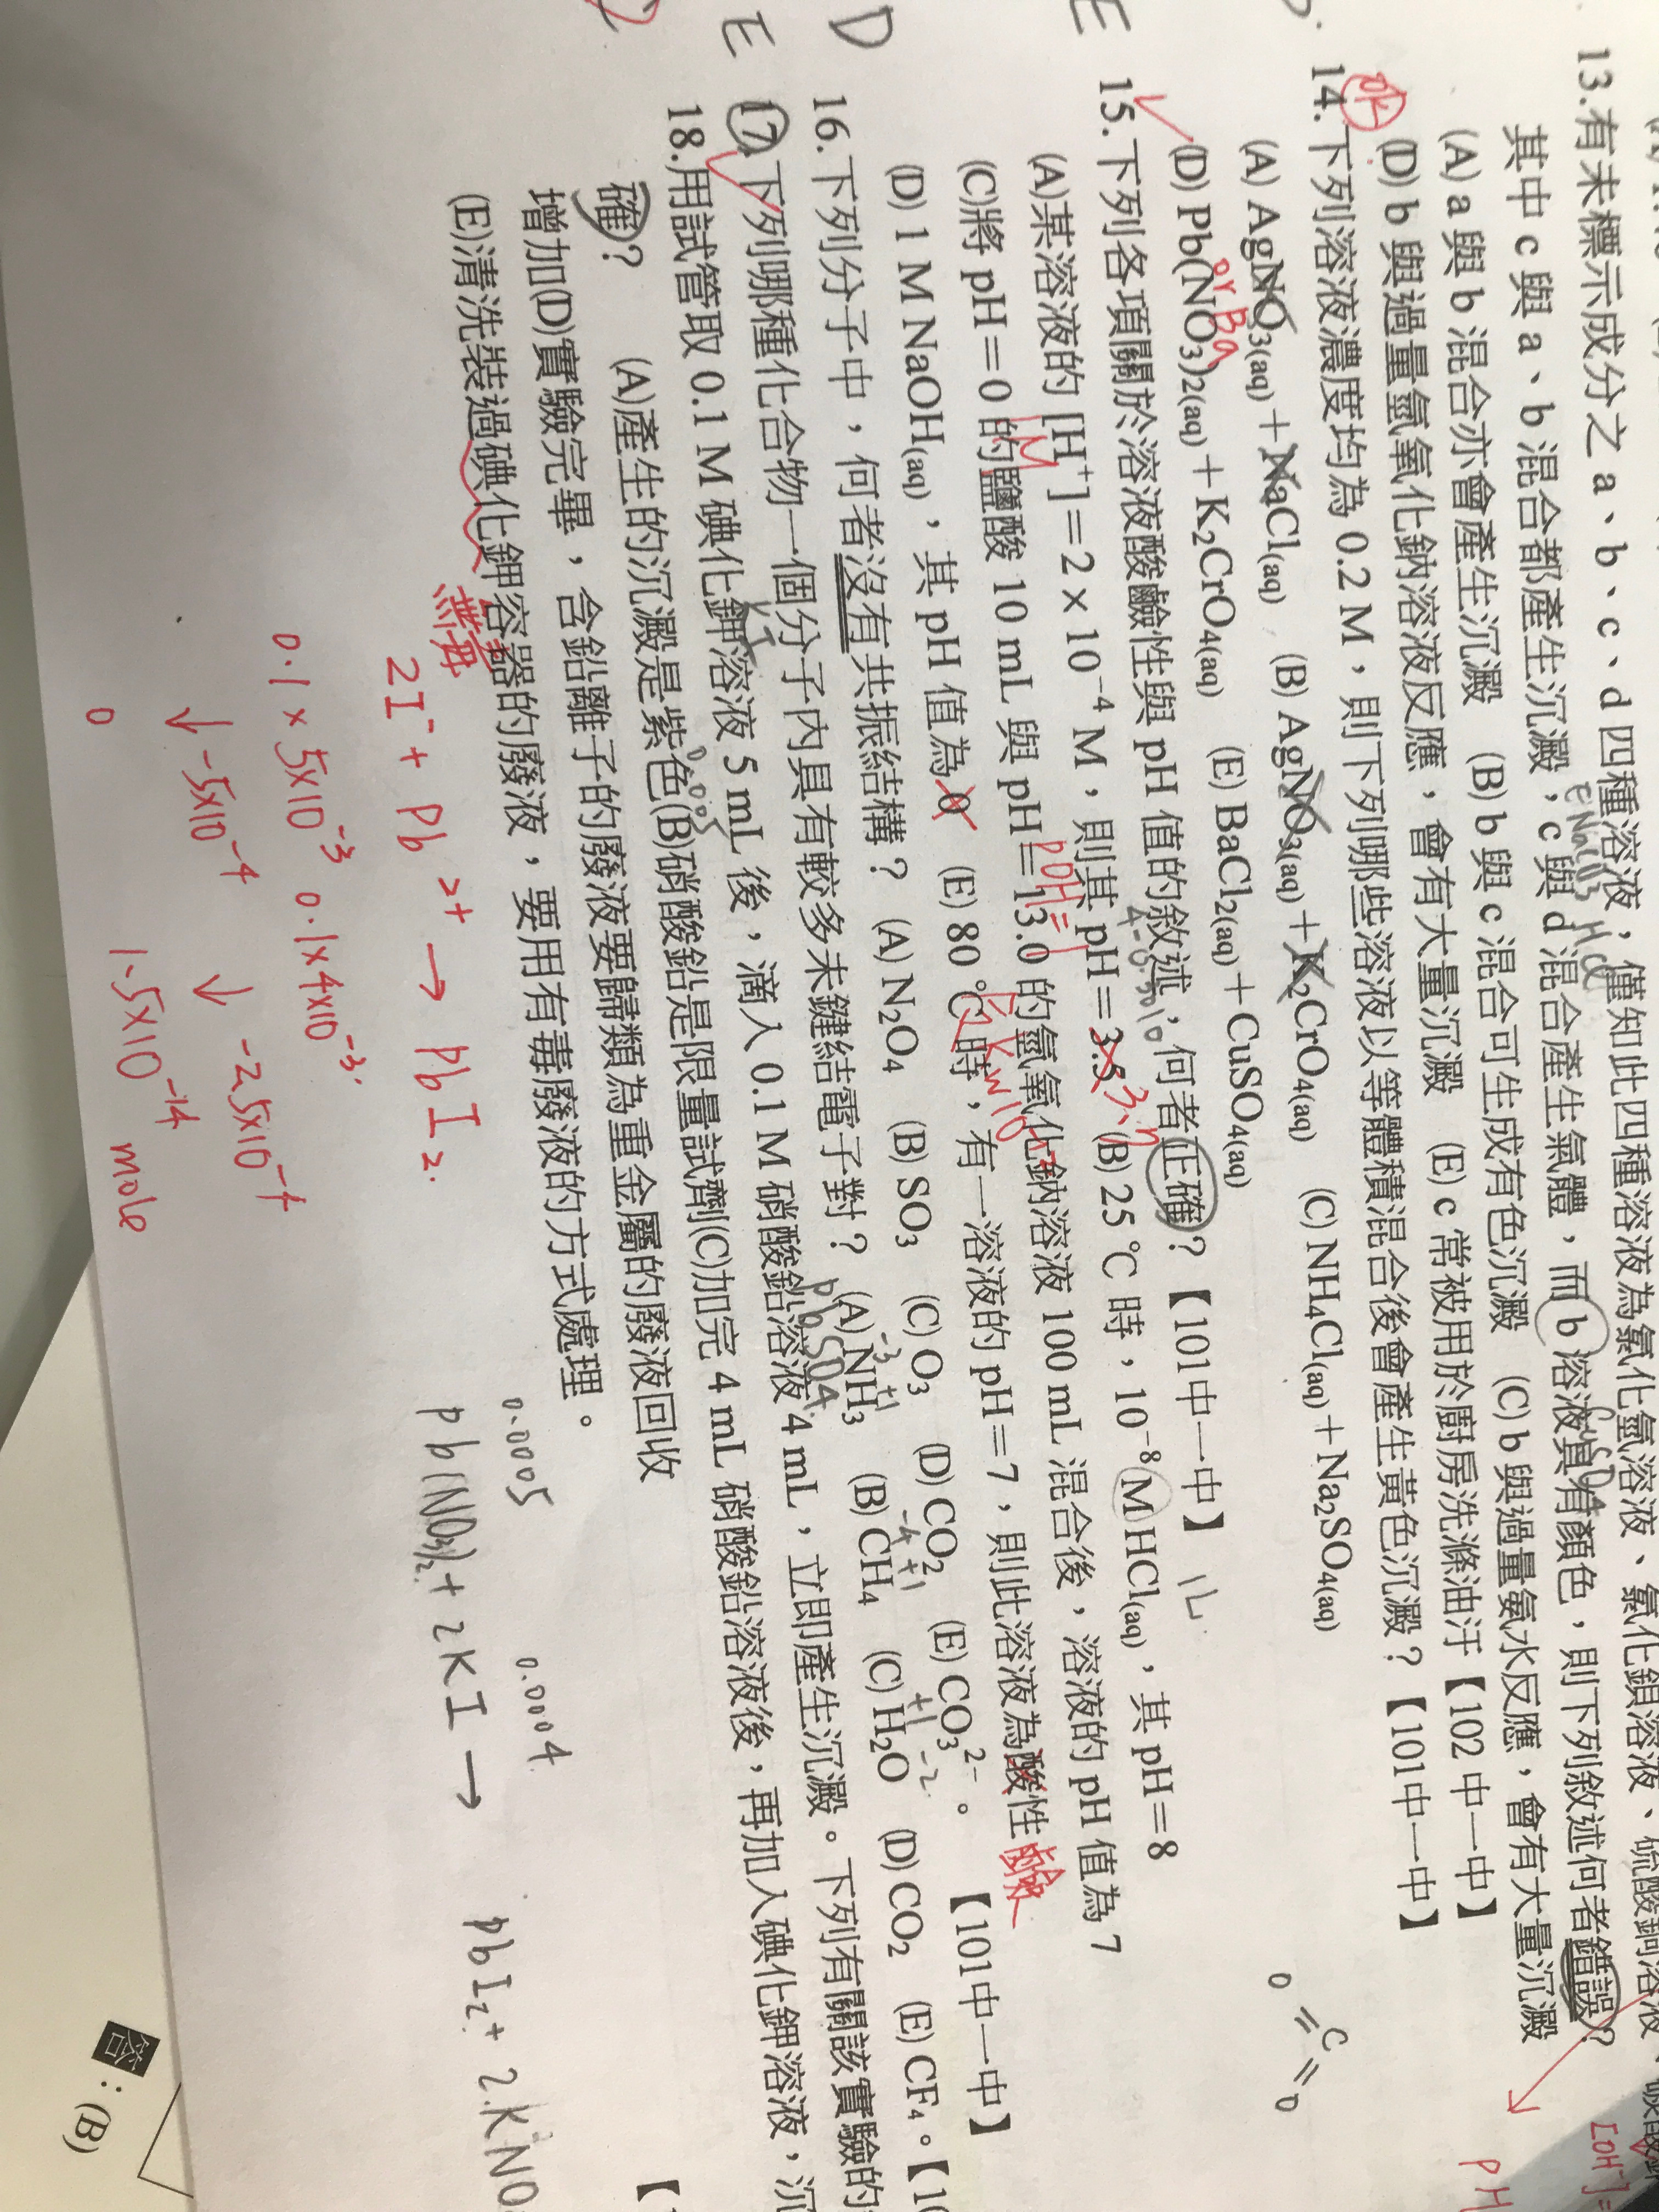 13.有未標示成分之 a、b、c、d 四種溶液，僅知此四種溶液為氯化氫溶液、氯化鋇溶液、硫酸銅溶液、碳酸
其中 c 與 a、b 混合都產生沉澱，c 與 d 混合產生氣體，而 b 溶液具有顏色，則下列敘述何者錯誤？
(A) a 與 b 混合亦會產生沉澱 (B) b 與 c 混合可生成有色沉澱 (C) b 與過量氨水反應，會有大量沉澱
(D) b 與過量氫氧化鈉溶液反應，會有大量沉澱 (E) c 常被用於廚房洗滌油汙【102 中一中】
14.下列溶液濃度均為 0.2 M，則下列哪些溶液以等體積混合後會產生黃色沉澱？【101中一中】
(A) AgNO3(aq)＋NaCl(aq) (B) AgNO3(aq)＋K2CrO4(aq) (C) NH4Cl(aq)＋Na2SO4(aq)
(D) Pb(NO3)2(aq)＋K2CrO4(aq) (E) BaCl2(aq)＋CuSO4(aq)
or Ba
O=C=O
E
15.下列各項關於溶液酸鹼性與 pH 值的敘述，何者正確？【101中一中】
(A)某溶液的 [H⁺]＝2 × 10⁻⁴ M，則其 pH＝3.5 (B) 25 ℃ 時，10⁻⁸ M HCl(aq)，其 pH＝8
(C)將 pH＝0 的鹽酸 10 mL 與 pH＝13.0 的氫氧化鈉溶液 100 mL 混合後，溶液的 pH 值為 7
1M
pOH=1
(D) 1 M NaOH(aq)，其 pH 值為 0 (E) 80 ℃時，有一溶液的 pH＝7，則此溶液為酸性 鹼
D
16.下列分子中，何者沒有共振結構？ (A) N2O4 (B) SO3 (C) O3 (D) CO2 (E) CO3²⁻。 【101中一中】
E
17.下列哪種化合物一個分子內具有較多未鍵結電子對？ (A) NH3 (B) CH4 (C) H2O (D) CO2 (E) CF4。【10
-3 +1
-4 +1
+1 -2
18.用試管取 0.1 M 碘化鉀溶液 5 mL 後，滴入 0.1 M 硝酸鉛溶液 4 mL，立即產生沉澱。下列有關該實驗的
KI
確？ (A)產生的沉澱是紫色(B)硝酸鉛是限量試劑(C)加完 4 mL 硝酸鉛溶液後，再加入碘化鉀溶液，沉
增加(D)實驗完畢，含鉛離子的廢液要歸類為重金屬的廢液回收
(E)清洗裝過碘化鉀容器的廢液，要用有毒廢液的方式處理。
無毒
2I⁻ + Pb²⁺ → PbI2.
0.1×5×10⁻³ 0.1×4×10⁻³
↓ -5×10⁻⁴ ↓ -2.5×10⁻⁴
0 1.5×10⁻⁴ mole
0.0005 0.0004
Pb(NO3)2 + 2KI → PbI2 + 2KNO
答：(B)